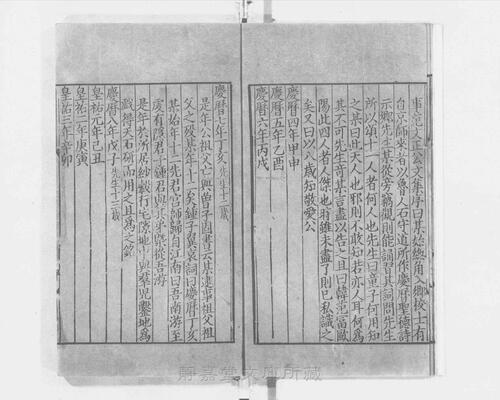 事范文正公文集序曰某始總角入鄉校士有
自京師來者以魯人石守道所作慶曆聖德詩
示鄉先生某從旁竊觀則能誦習其詞問先生
所以頌十一人者何人也先生曰童子何用知
之某曰此天人也耶則不敢知若亦人耳何為
其不可先生奇某言盡以告之且曰韓范富歐
陽此四人者人傑也時雖未盡了則已私識之
矣又曰以八歲知敬愛公
慶曆四年甲申
慶曆五年乙酉
慶曆六年丙戌
慶曆七年丁亥 先生十二歲
是年公祖父亡與曾子固書云某逮事祖父祖
父之歿某年十二矣鍾子翼哀詞曰慶曆丁亥
某始年十二先君宮師歸自江南曰吾南游至
虔有隱君子鍾君與其弟槩從吾游
是年於所居紗縠行宅隙地中與群兒鑿地為
戲得天石硯而用之且為之銘
慶曆八年戊子 先生十三歲
皇祐元年己丑
皇祐二年庚寅
皇祐三年辛卯
靜嘉堂文庫所藏